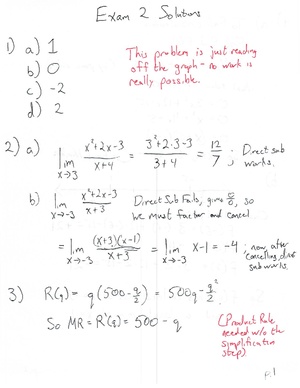 Exam 2 Solutions
1) a) 1
b) 0
c) -2
d) 2
This problem is just reading
off the graph - no work is
really possible.
2) a) lim x→3 (x²+2x-3)/(x+4) = (3²+2·3-3)/(3+4) = 12/7 ; Direct sub
works.
b) lim x→-3 (x²+2x-3)/(x+3) Direct Sub Fails, gives 0/0, so
we must factor and cancel.
= lim x→-3 (x+3)(x-1)/(x+3) = lim x→-3 x-1 = -4 ; now, after
cancelling, direct
sub works.
3) R(q) = q(500-q/2) = 500q - q²/2
So MR = R'(q) = 500 - q
(Product Rule
needed w/o the
simplification
step).
p.1